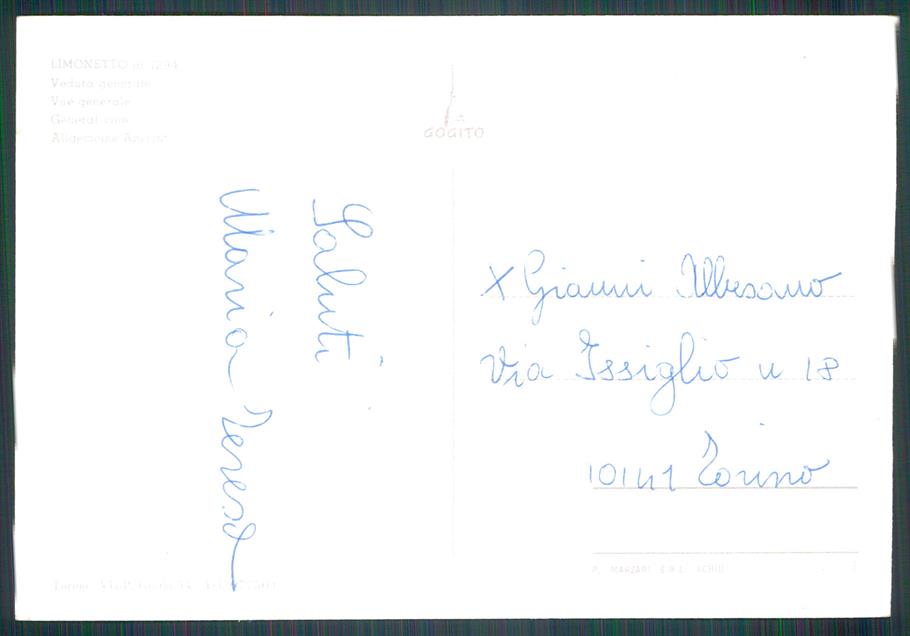 LIMONETTO m. 1294
Veduta generale
Vue generale
General view
Allgemeine Ansicht
GOGITO
Saluti
Maria Teresa
X Gianni Albesano
Via Issiglio n 18
10141 Torino
Torino
MARZARI S.R.L. SCHIO